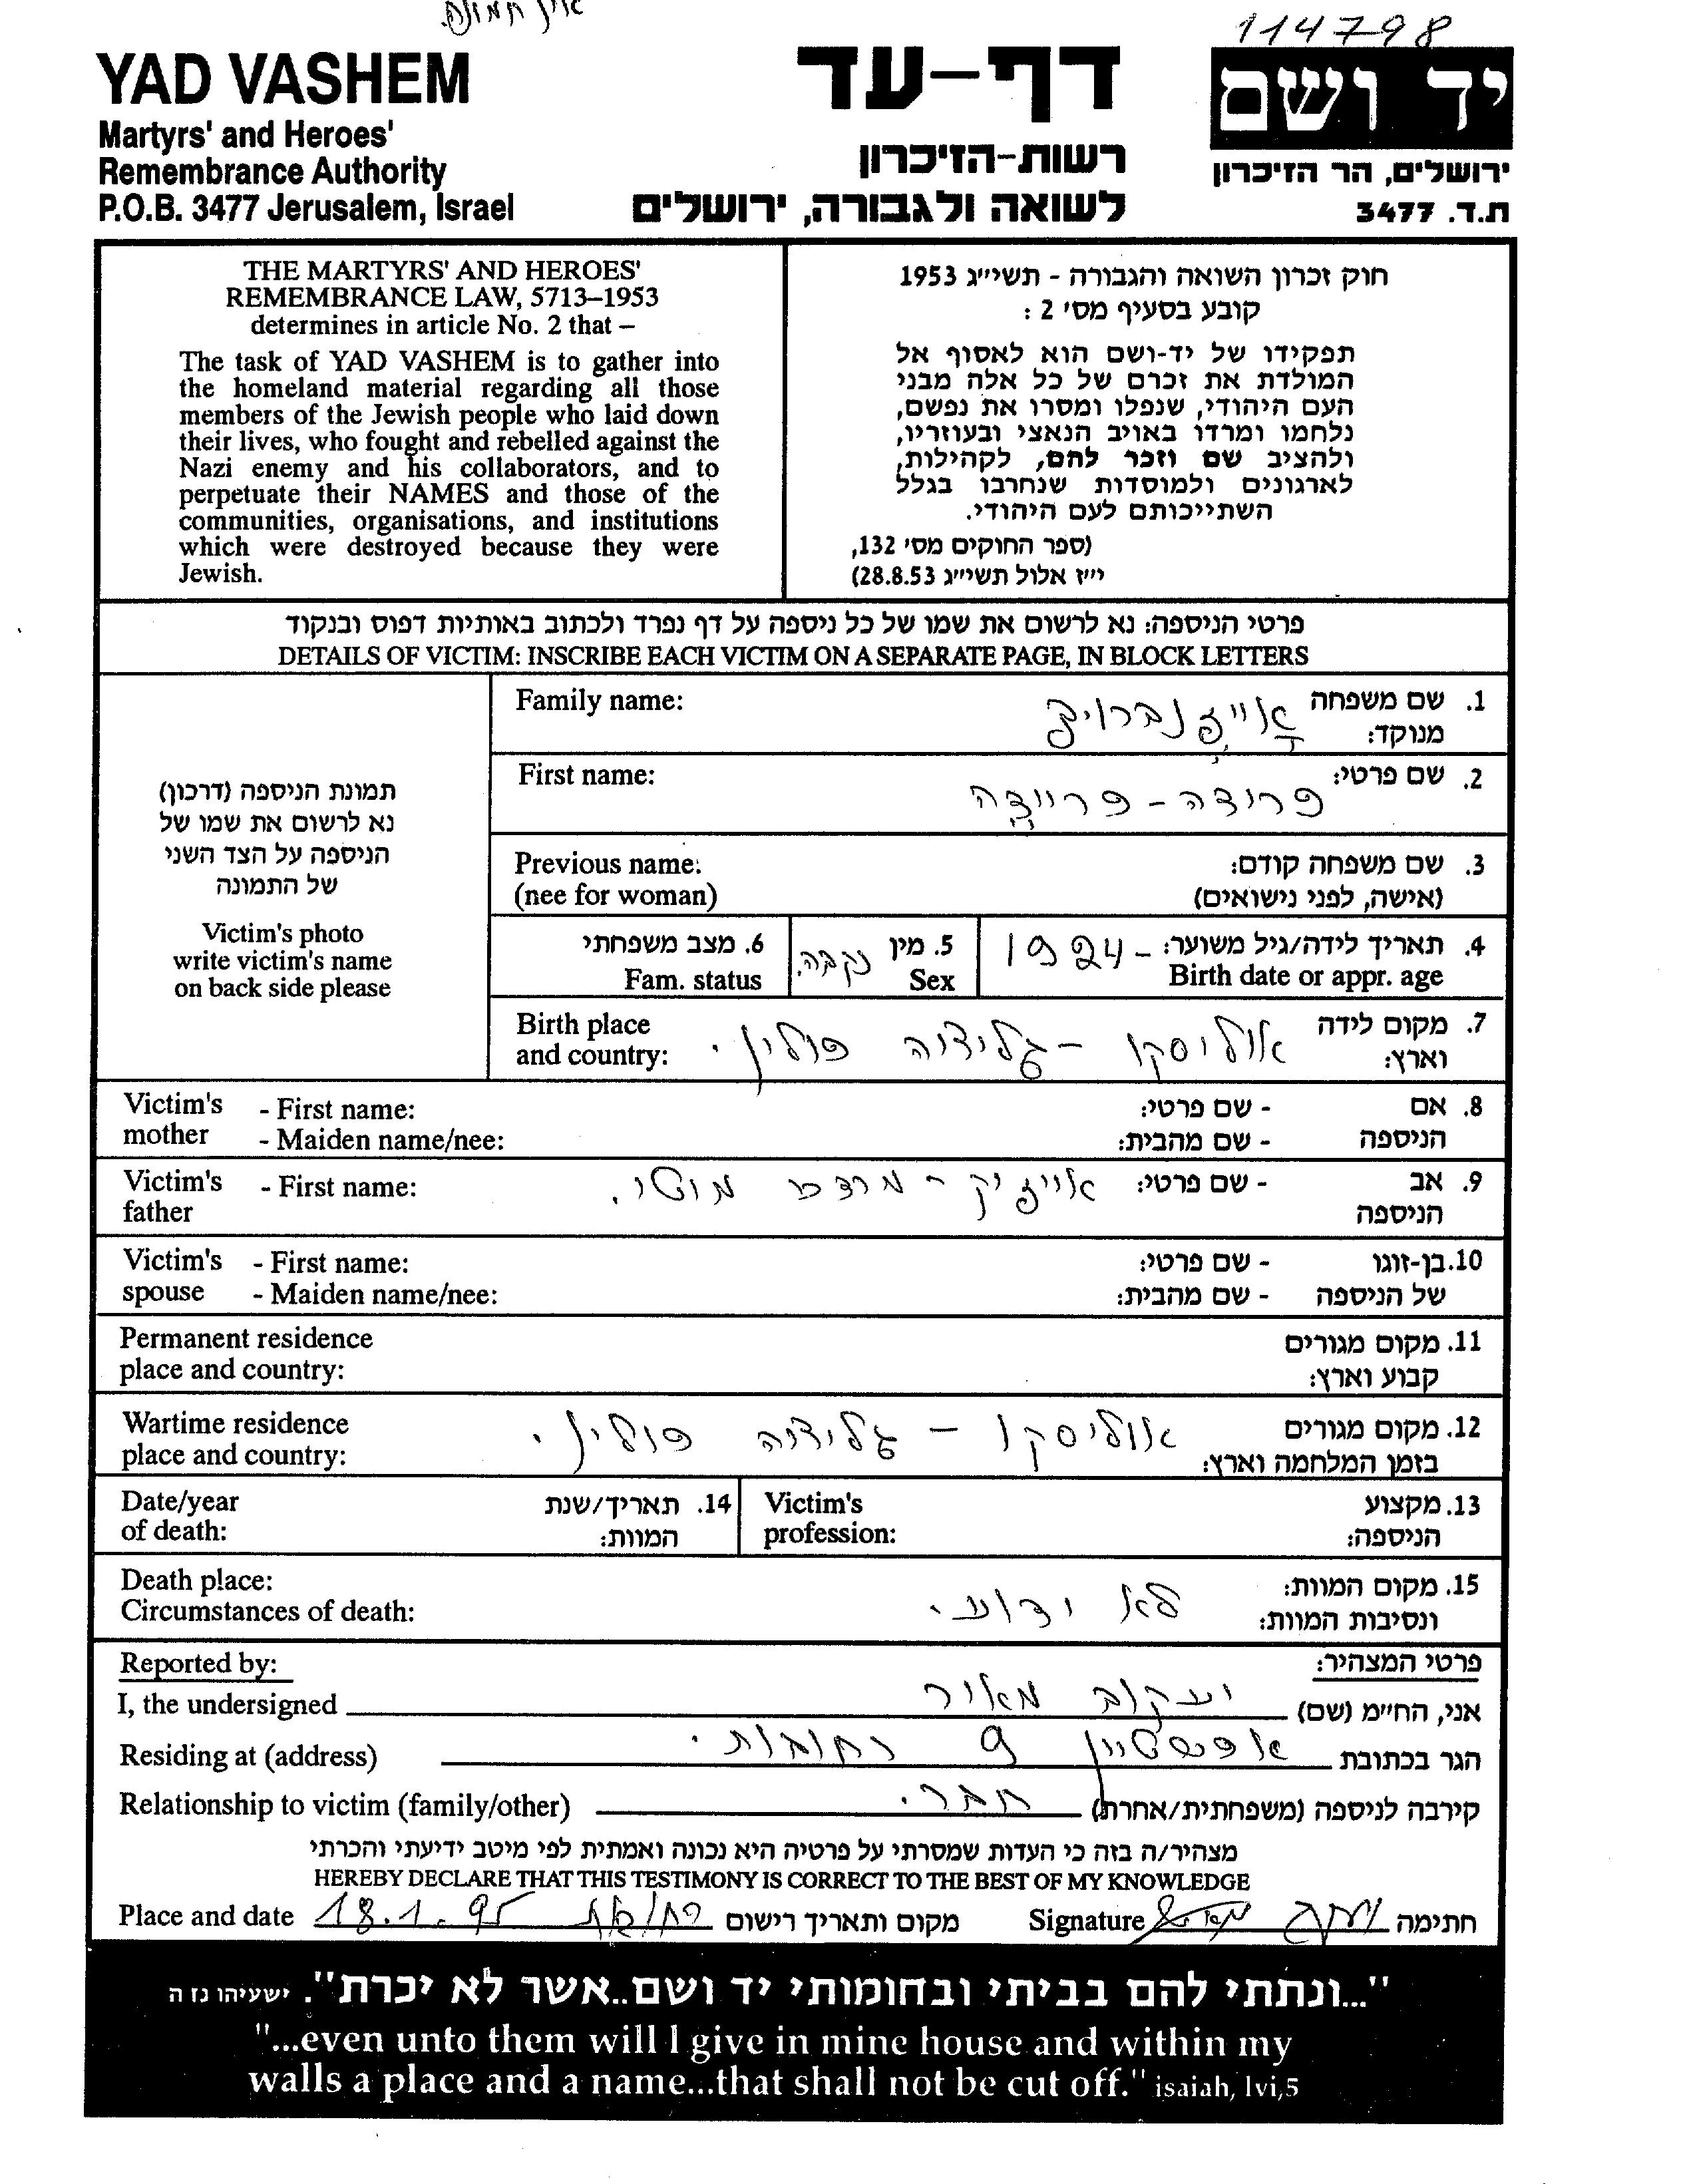 אין תמונה.
114798
YAD VASHEM
Martyrs' and Heroes'
Remembrance Authority
P.O.B. 3477 Jerusalem, Israel
דף-עד
רשות-הזיכרון
לשואה ולגבורה, ירושלים
יד ושם
ירושלים, הר הזיכרון
ת.ד. 3477
THE MARTYRS' AND HEROES'
REMEMBRANCE LAW, 5713–1953
determines in article No. 2 that –
The task of YAD VASHEM is to gather into
the homeland material regarding all those
members of the Jewish people who laid down
their lives, who fought and rebelled against the
Nazi enemy and his collaborators, and to
perpetuate their NAMES and those of the
communities, organisations, and institutions
which were destroyed because they were
Jewish.
חוק זכרון השואה והגבורה - תשי״ג 1953
קובע בסעיף מס' 2 :
תפקידו של יד-ושם הוא לאסוף אל
המולדת את זכרם של כל אלה מבני
העם היהודי, שנפלו ומסרו את נפשם,
נלחמו ומרדו באויב הנאצי ובעוזריו,
ולהציב שם וזכר להם, לקהילות,
לארגונים ולמוסדות שנחרבו בגלל
השתייכותם לעם היהודי.
(ספר החוקים מס' 132,
י״ז אלול תשי״ג 28.8.53)
פרטי הניספה: נא לרשום את שמו של כל ניספה על דף נפרד ולכתוב באותיות דפוס ובנקוד
DETAILS OF VICTIM: INSCRIBE EACH VICTIM ON A SEPARATE PAGE, IN BLOCK LETTERS
תמונת הניספה (דרכון)
נא לרשום את שמו של
הניספה על הצד השני
של התמונה
Victim's photo
write victim's name
on back side please
Family name: 1. שם משפחה
מנוקד:
First name: פרידה - פריידה 2. שם פרטי:
Previous name: 3. שם משפחה קודם:
(nee for woman) (אישה, לפני נישואים)
4. תאריך לידה/גיל משוער: - 1924
Birth date or appr. age
5. מין נקבה.
Sex
6. מצב משפחתי
Fam. status
Birth place 7. מקום לידה
and country: וארץ: אוליסקו - גליציה פולין.
Victim's - First name: 8. אם - שם פרטי:
mother - Maiden name/nee: הניספה - שם מהבית:
Victim's - First name: 9. אב - שם פרטי: אייזיק - מרדכי
father הניספה
Victim's - First name: 10. בן-זוגו - שם פרטי:
spouse - Maiden name/nee: של הניספה - שם מהבית:
Permanent residence 11. מקום מגורים
place and country: קבוע וארץ:
Wartime residence 12. מקום מגורים
place and country: בזמן המלחמה וארץ: אוליסקו - גליציה פולין.
Date/year 14. תאריך/שנת
of death: המוות:
Victim's 13. מקצוע
profession: הניספה:
Death place: 15. מקום המוות:
Circumstances of death: ונסיבות המוות: לא ידוע.
Reported by: פרטי המצהיר:
I, the undersigned אני, החי״מ (שם) יעקוב מאור
Residing at (address) הגר בכתובת אפשטיין 9 רחובות.
Relationship to victim (family/other) קירבה לניספה (משפחתית/אחרת) חבר.
מצהיר/ה בזה כי העדות שמסרתי על פרטיה היא נכונה ואמתית לפי מיטב ידיעתי והכרתי
HEREBY DECLARE THAT THIS TESTIMONY IS CORRECT TO THE BEST OF MY KNOWLEDGE
Place and date 18.1.95 רחובות מקום ותאריך רישום Signature חתימה
"...ונתתי להם בביתי ובחומותי יד ושם..אשר לא יכרת". ישעיהו נו ה
"...even unto them will I give in mine house and within my
walls a place and a name...that shall not be cut off." isaiah, lvi,5